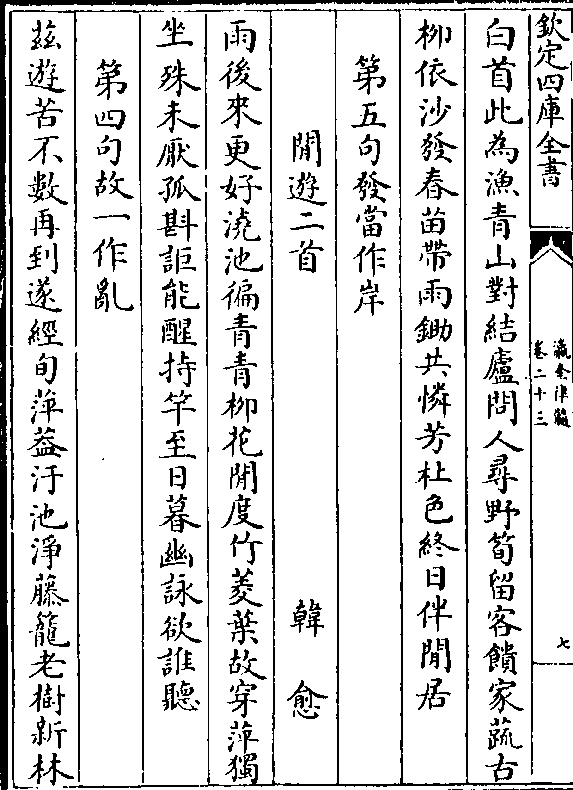 欽定四庫全書
瀛奎律髓
卷二十三
七
白首此為漁青山對結廬問人尋野筍留客饋家蔬古
柳依沙發春苗帶雨鋤共憐芳杜色終日伴閒居
第五句發當作岸
閒遊二首 韓愈
雨後來更好澆池徧青青柳花閒度竹菱葉故穿萍獨
坐殊未厭孤斟詎能醒持竿至日暮幽詠欲誰聽
第四句故一作亂
茲遊苦不數再到遂經旬萍葢汙池淨藤籠老樹新林